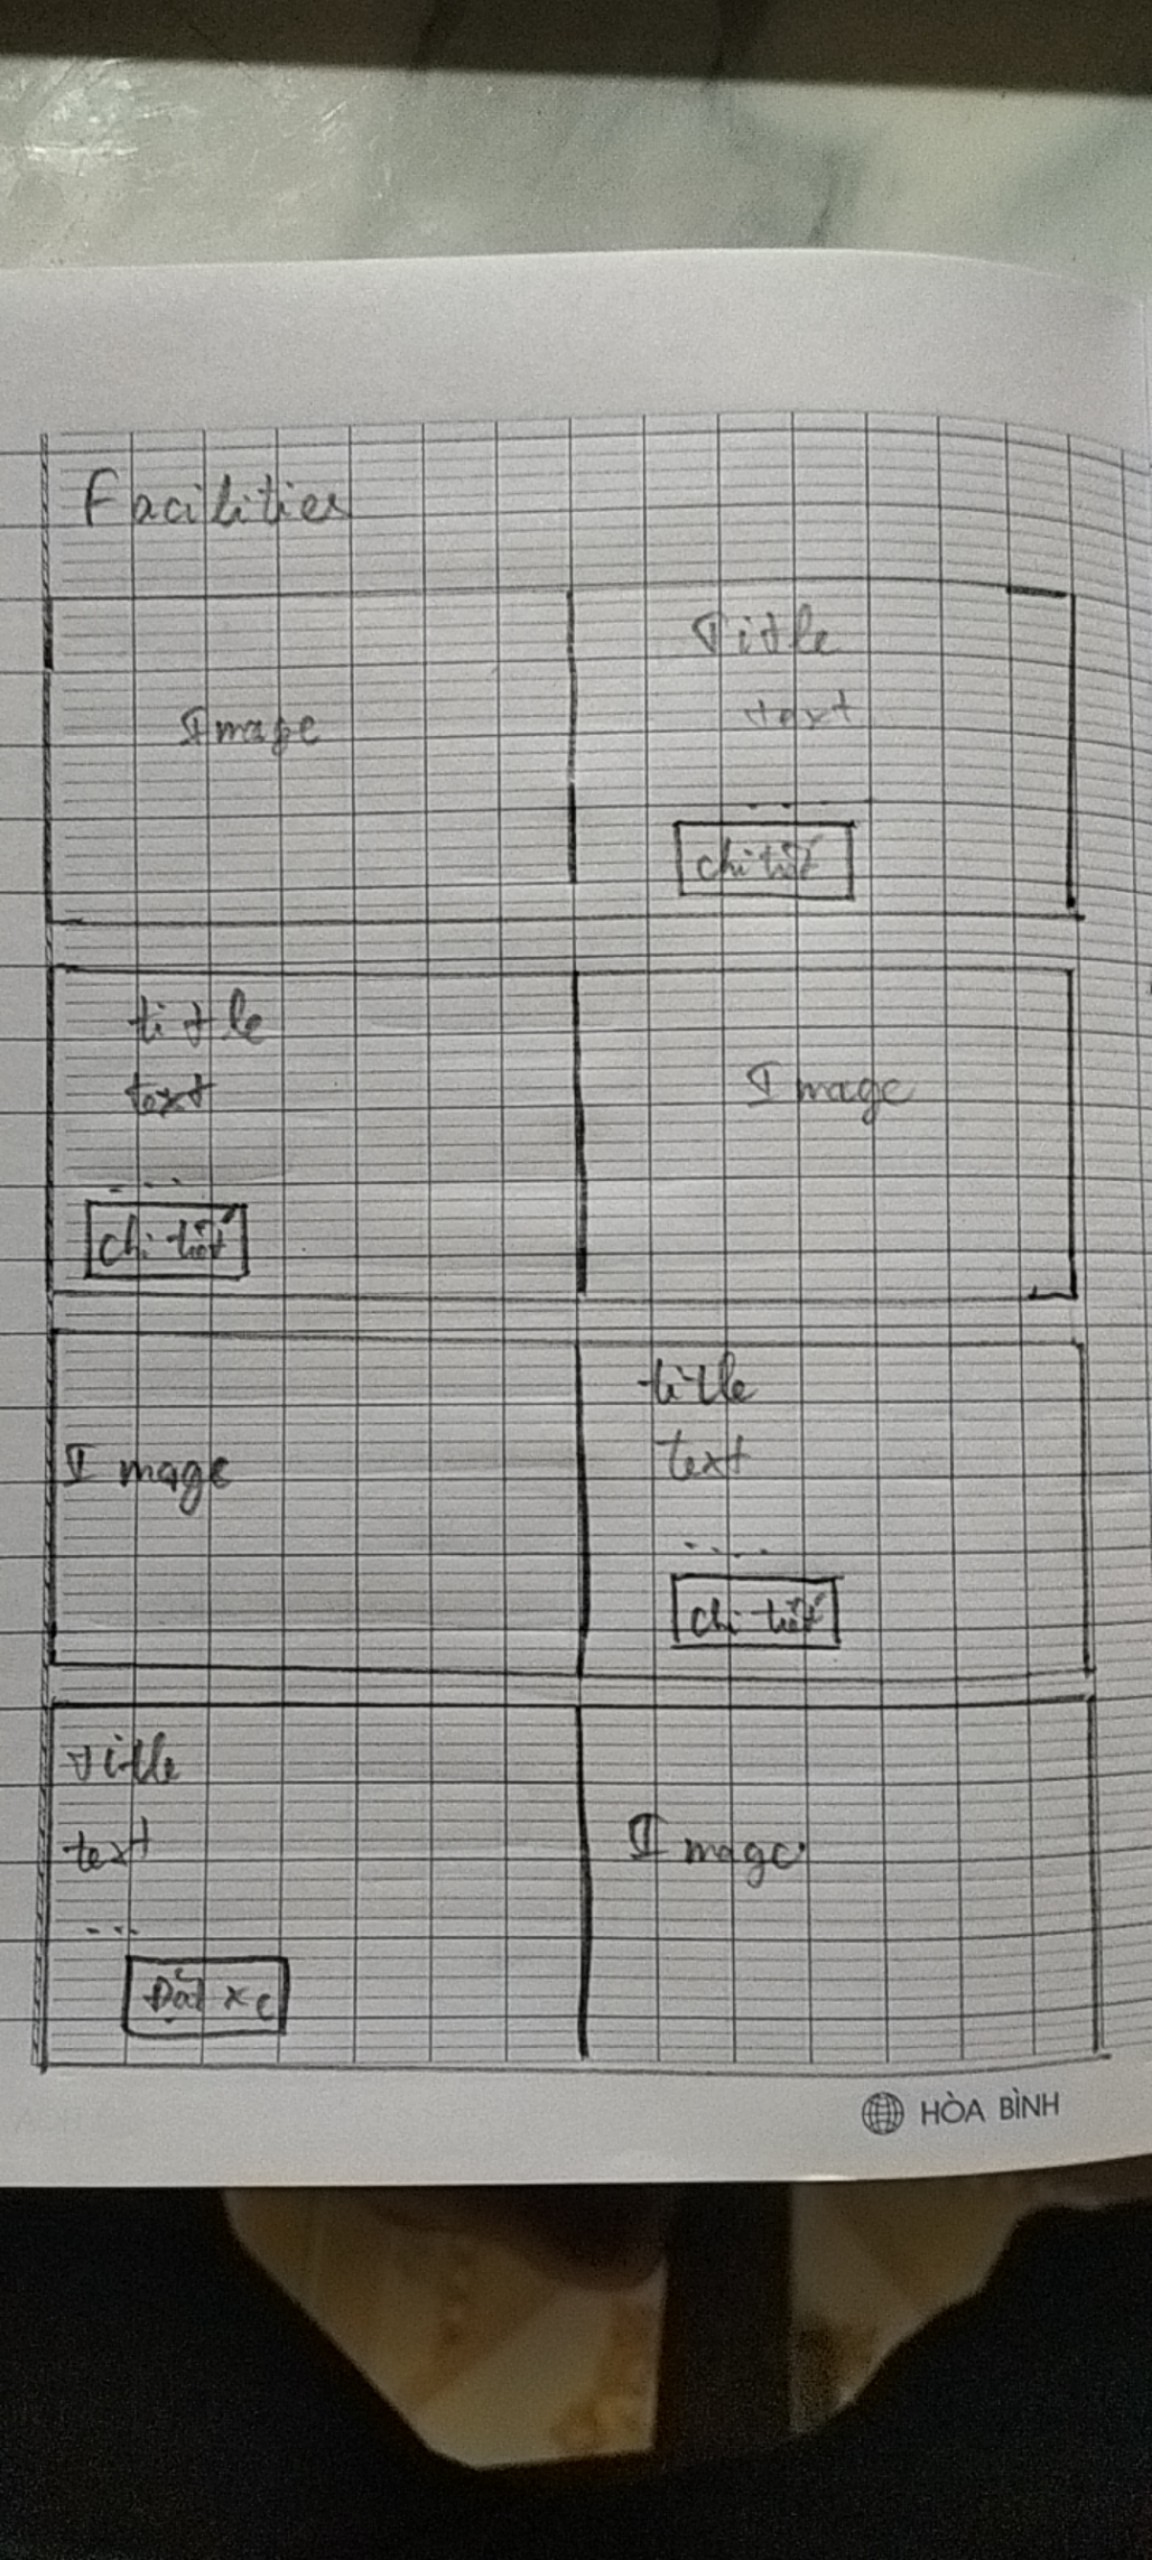 Facilities
Image
Title
text
...
chi tiết
title
text
....
chi tiết
Image
Image
title
text
....
chi tiết
Title
text
...
Đặt xe
Image
HÒA BÌNH